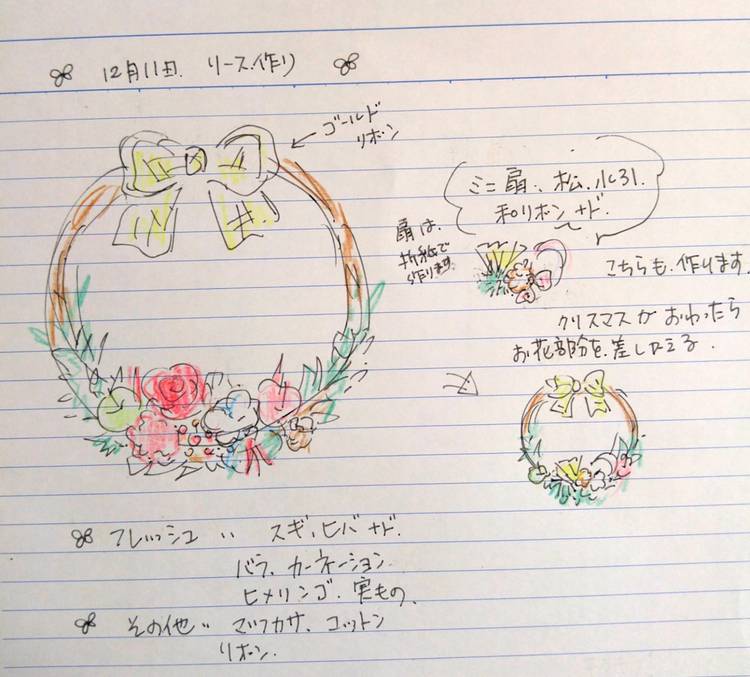 12月11日. リース作り
ゴールド
リボン
ミニ扇、松、水引、
和リボンナド.
扇は、
折紙で
作ります
こちらも作ります.
クリスマスがおわったら
お花部分を差しかえる.
フレッシュ‥ スギ、ヒバナド.
バラ、カーネーション
ヒメリンゴ、実もの、
その他‥ マツカサ、コットン
リボン.